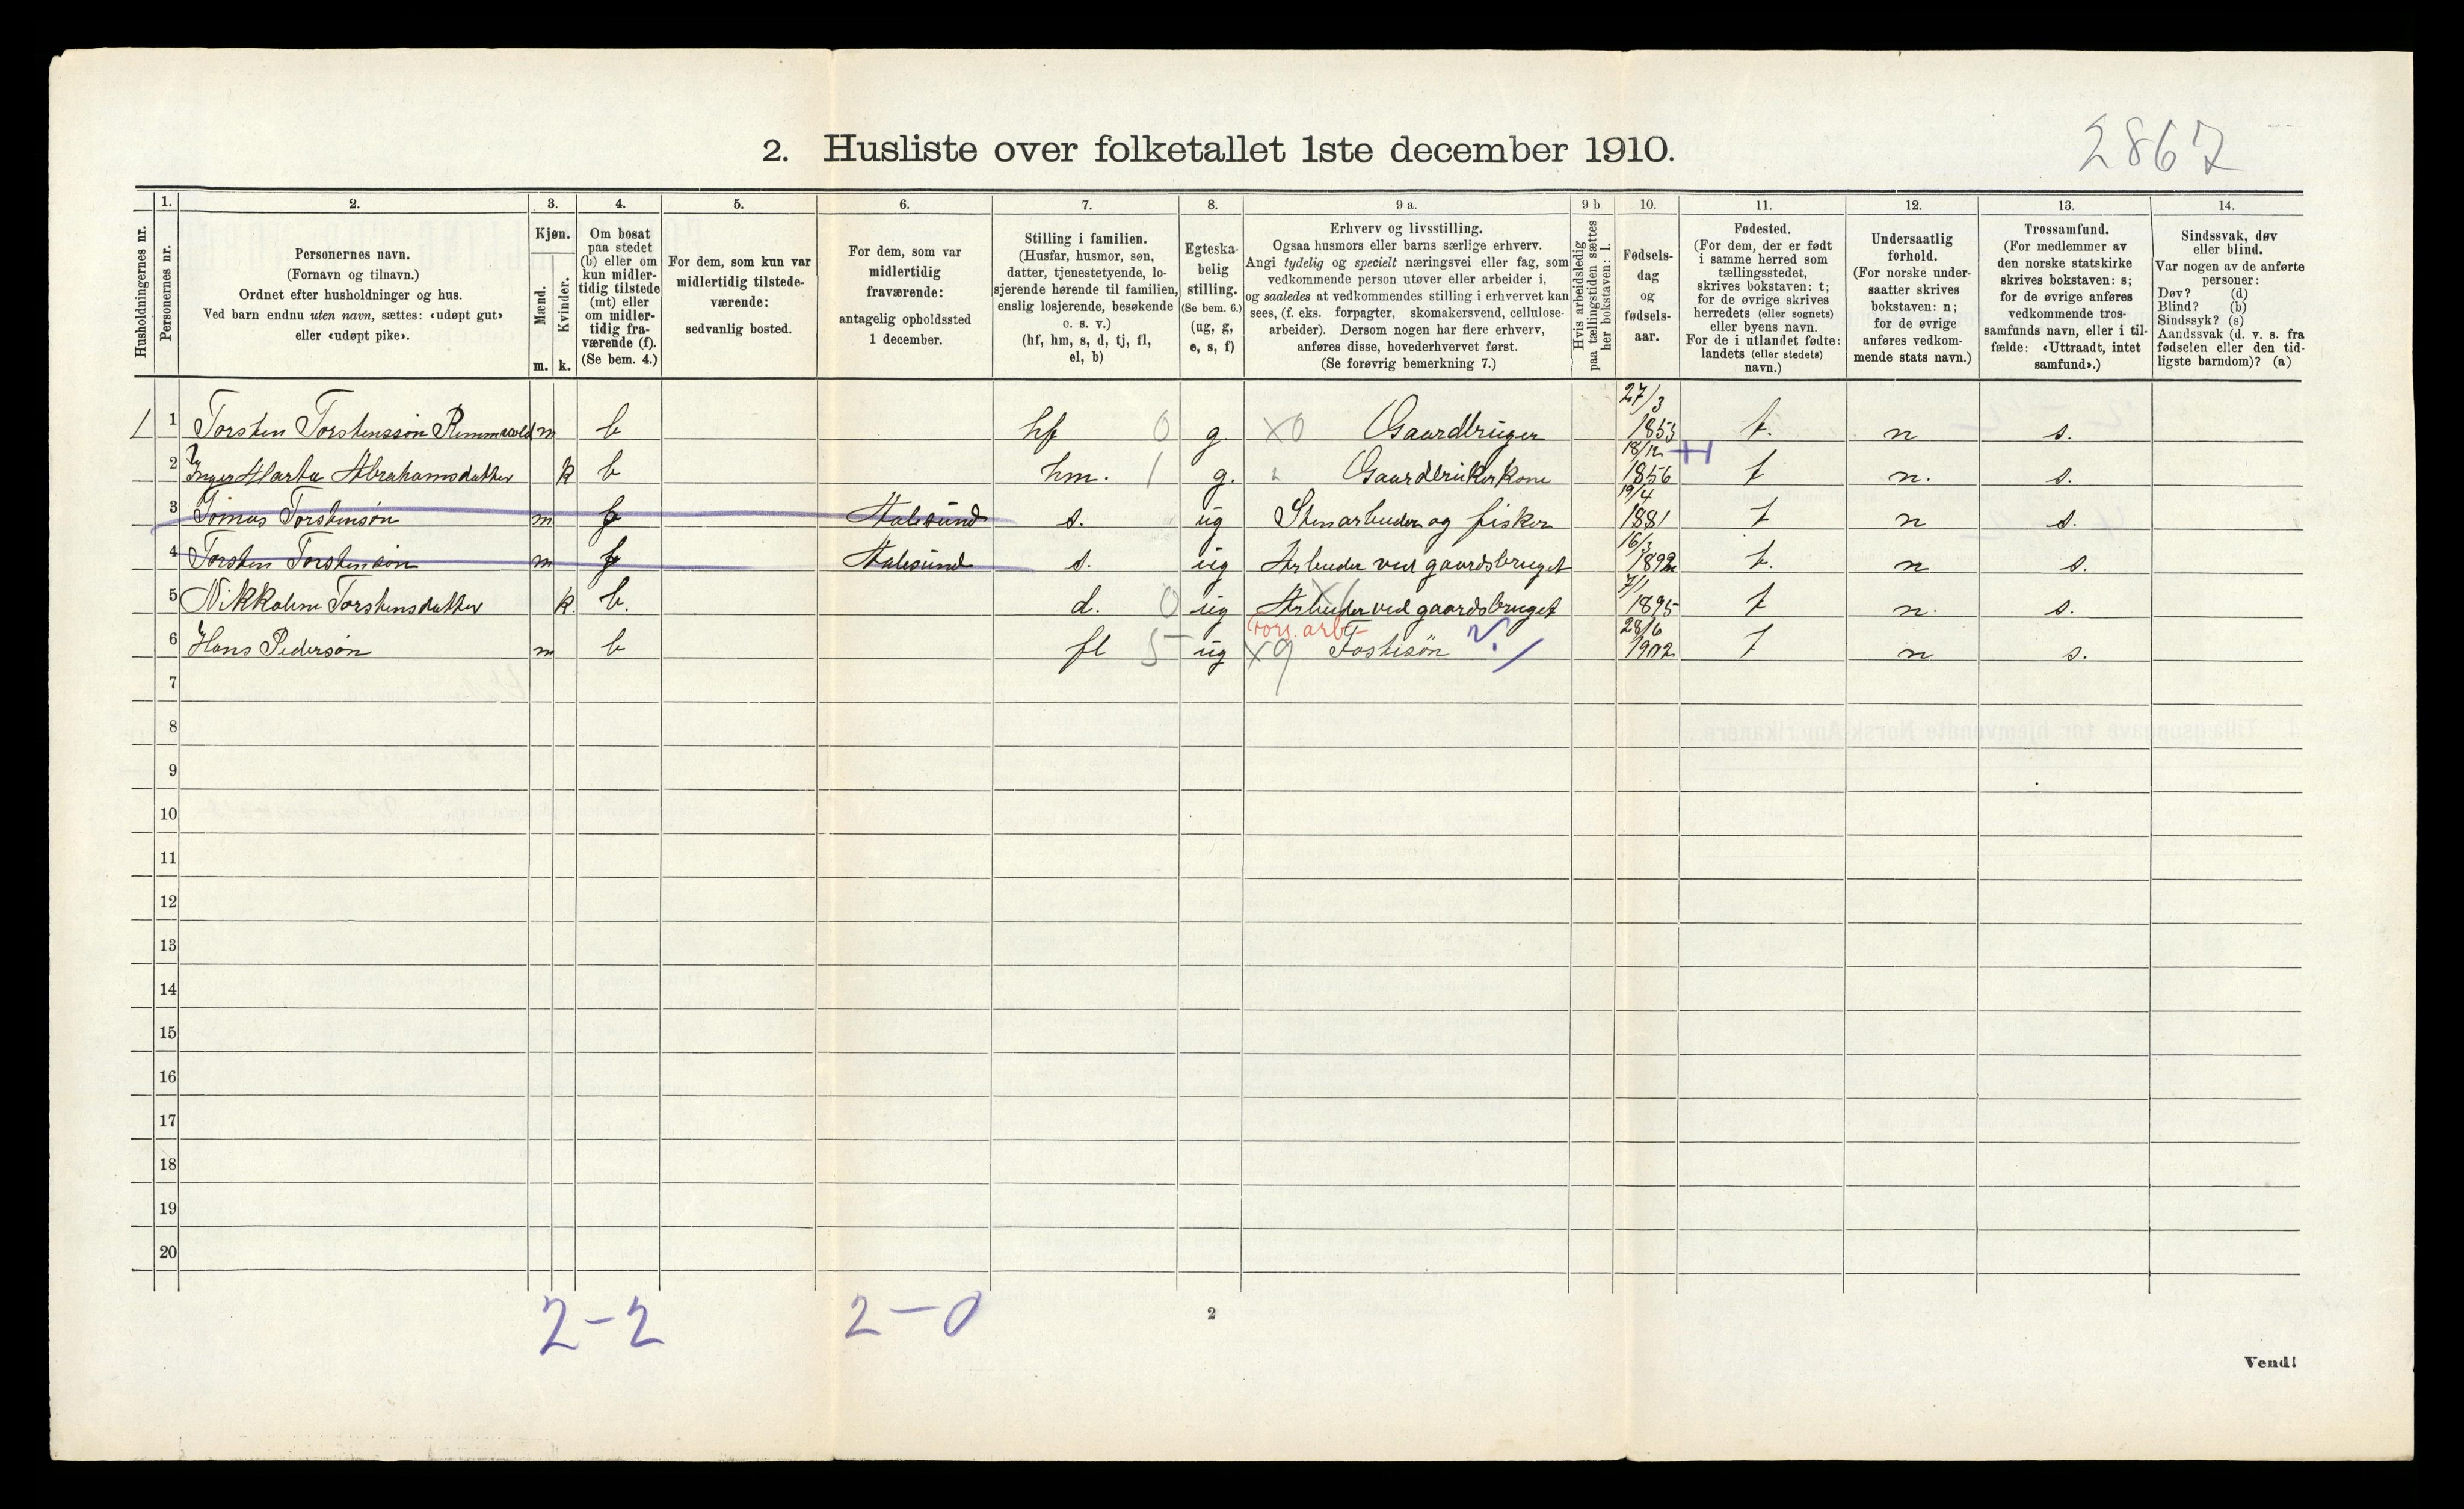 2867
2. Husliste over folketallet 1ste december 1910.
Husholdningernes nr.
1.
Personernes nr.
2.
Personernes navn.
(Fornavn og tilnavn.)
Ordnet efter husholdninger og hus.
Ved barn endnu uten navn, sættes: «udøpt gut»
eller «udøpt pike».
3.
Kjøn.
Mænd.
Kvinder.
m. k.
4.
Om bosat
paa stedet
(b) eller om
kun midler-
tidig tilstede
(mt) eller
om midler-
tidig fra-
værende (f).
(Se bem. 4.)
5.
For dem, som kun var
midlertidig tilstede-
værende:
sedvanlig bosted.
6.
For dem, som var
midlertidig
fraværende:
antagelig opholdssted
1 december.
7.
Stilling i familien.
(Husfar, husmor, søn,
datter, tjenestetyende, lo-
sjerende hørende til familien,
enslig losjerende, besøkende
o. s. v.)
(hf, hm, s, d, tj, fl,
el, b)
8.
Egteska-
belig
stilling.
(Se bem. 6.)
(ug, g,
e, s, f)
9 a.
Erhverv og livsstilling.
Ogsaa husmors eller barns særlige erhverv.
Angi tydelig og specielt næringsvei eller fag, som
vedkommende person utøver eller arbeider i,
og saaledes at vedkommendes stilling i erhvervet kan
sees, (f. eks. forpagter, skomakersvend, cellulose-
arbeider). Dersom nogen har flere erhverv,
anføres disse, hovederhvervet først.
(Se forøvrig bemerkning 7.)
9 b
Hvis arbeidsledig
paa tællingstiden sættes
her bokstaven: l.
10.
Fødsels-
dag
og
fødsels-
aar.
11.
Fødested.
(For dem, der er født
i samme herred som
tællingsstedet,
skrives bokstaven: t;
for de øvrige skrives
herredets (eller sognets)
eller byens navn.
For de i utlandet fødte:
landets (eller stedets)
navn.)
12.
Undersaatlig
forhold.
(For norske under-
saatter skrives
bokstaven: n;
for de øvrige
anføres vedkom-
mende stats navn.)
13.
Trossamfund.
(For medlemmer av
den norske statskirke
skrives bokstaven: s;
for de øvrige anføres
vedkommende tros-
samfunds navn, eller i til-
fælde: «Uttraadt, intet
samfund».)
14.
Sindssvak, døv
eller blind.
Var nogen av de anførte
personer:
Døv? (d)
Blind? (b)
Sindssyk? (s)
Aandssvak (d. v. s. fra
fødselen eller den tid-
ligste barndom)? (a)
1 1 Torsten Torstenssøn m b hf 0 g. X0 Gaardbruger 27/3 1853 t. n s.
2 Inger Marta Abrahamsdatter k b hm. 1 g. Gaardbrukerkone 18/12 1856 t n. s.
3 Tomas Torstensøn m f Aalesund s. ug Stenarbeider og fisker 19/4 1881 t n s.
4 Torsten Torstensøn m f Aalesund s. ug Arbeider ved gaardsbruget 16/3 1892 t. n s.
5 Nikkoline Torstensdatter k. b. d. 0 ug Arbeider ved gaardsbruget 7/1 1895 t n. s.
6 Hans Pedersøn m b fl 5 ug fors. arb. X9 Fostisøn 28/6 1902 t n s.
7
8
9
10
11
12
13
14
15
16
17
18
19
20
2-2 2-0
2
Vend!